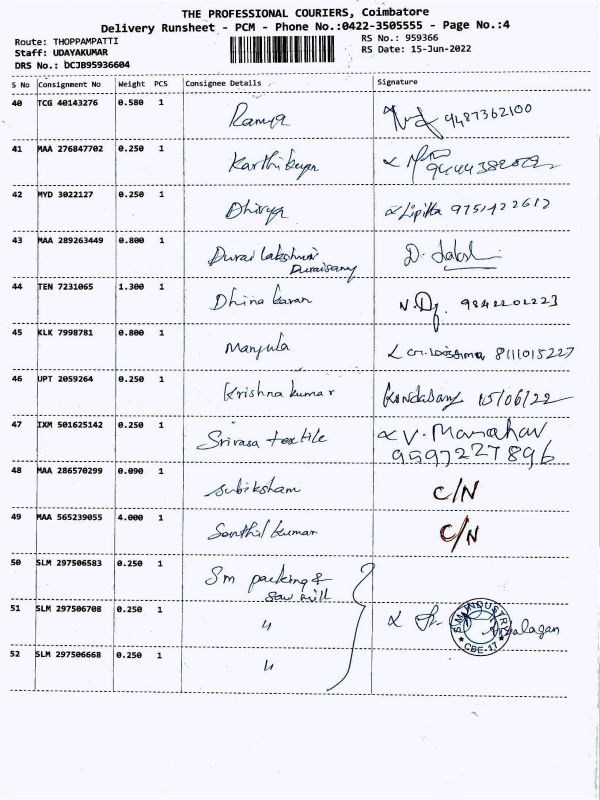 THE PROFESSIONAL COURIERS, Coimbatore
Delivery Runsheet - PCM - Phone No.:0422-3505555 - Page No.:4
Route: THOPPAMPATTI
Staff: UDAYAKUMAR
DRS No.: DCJB95936604
RS No.: 959366
RS Date: 15-Jun-2022
S No Consignment No Weight PCS Consignee Details Signature
40 TCG 40143276 0.580 1 Ramya 9487362100
41 MAA 276847702 0.250 1 Karthikeyan
42 MYD 3022127 0.250 1 Dhivya 9751422612
43 MAA 289263449 0.800 1 Durai Lakshmi D.
Duraisamy
44 TEN 7231065 1.300 1 Dhina karan
45 KLK 7998781 0.800 1 Manjula 8111015227
46 UPT 2059264 0.250 1 Krishna kumar Kandasamy 15/06/22
47 IXM 501625142 0.250 1 Srivasa textile V. Manohar
9597227896
48 MAA 286570299 0.090 1 Subiksham C/N
49 MAA 565239055 4.000 1 Senthil kumar C/N
50 SLM 297506583 0.250 1 Sm packing &
saw mill
51 SLM 297506708 0.250 1 "
SLM INDUSTRI
CBE-17
52 SLM 297506668 0.250 1 "